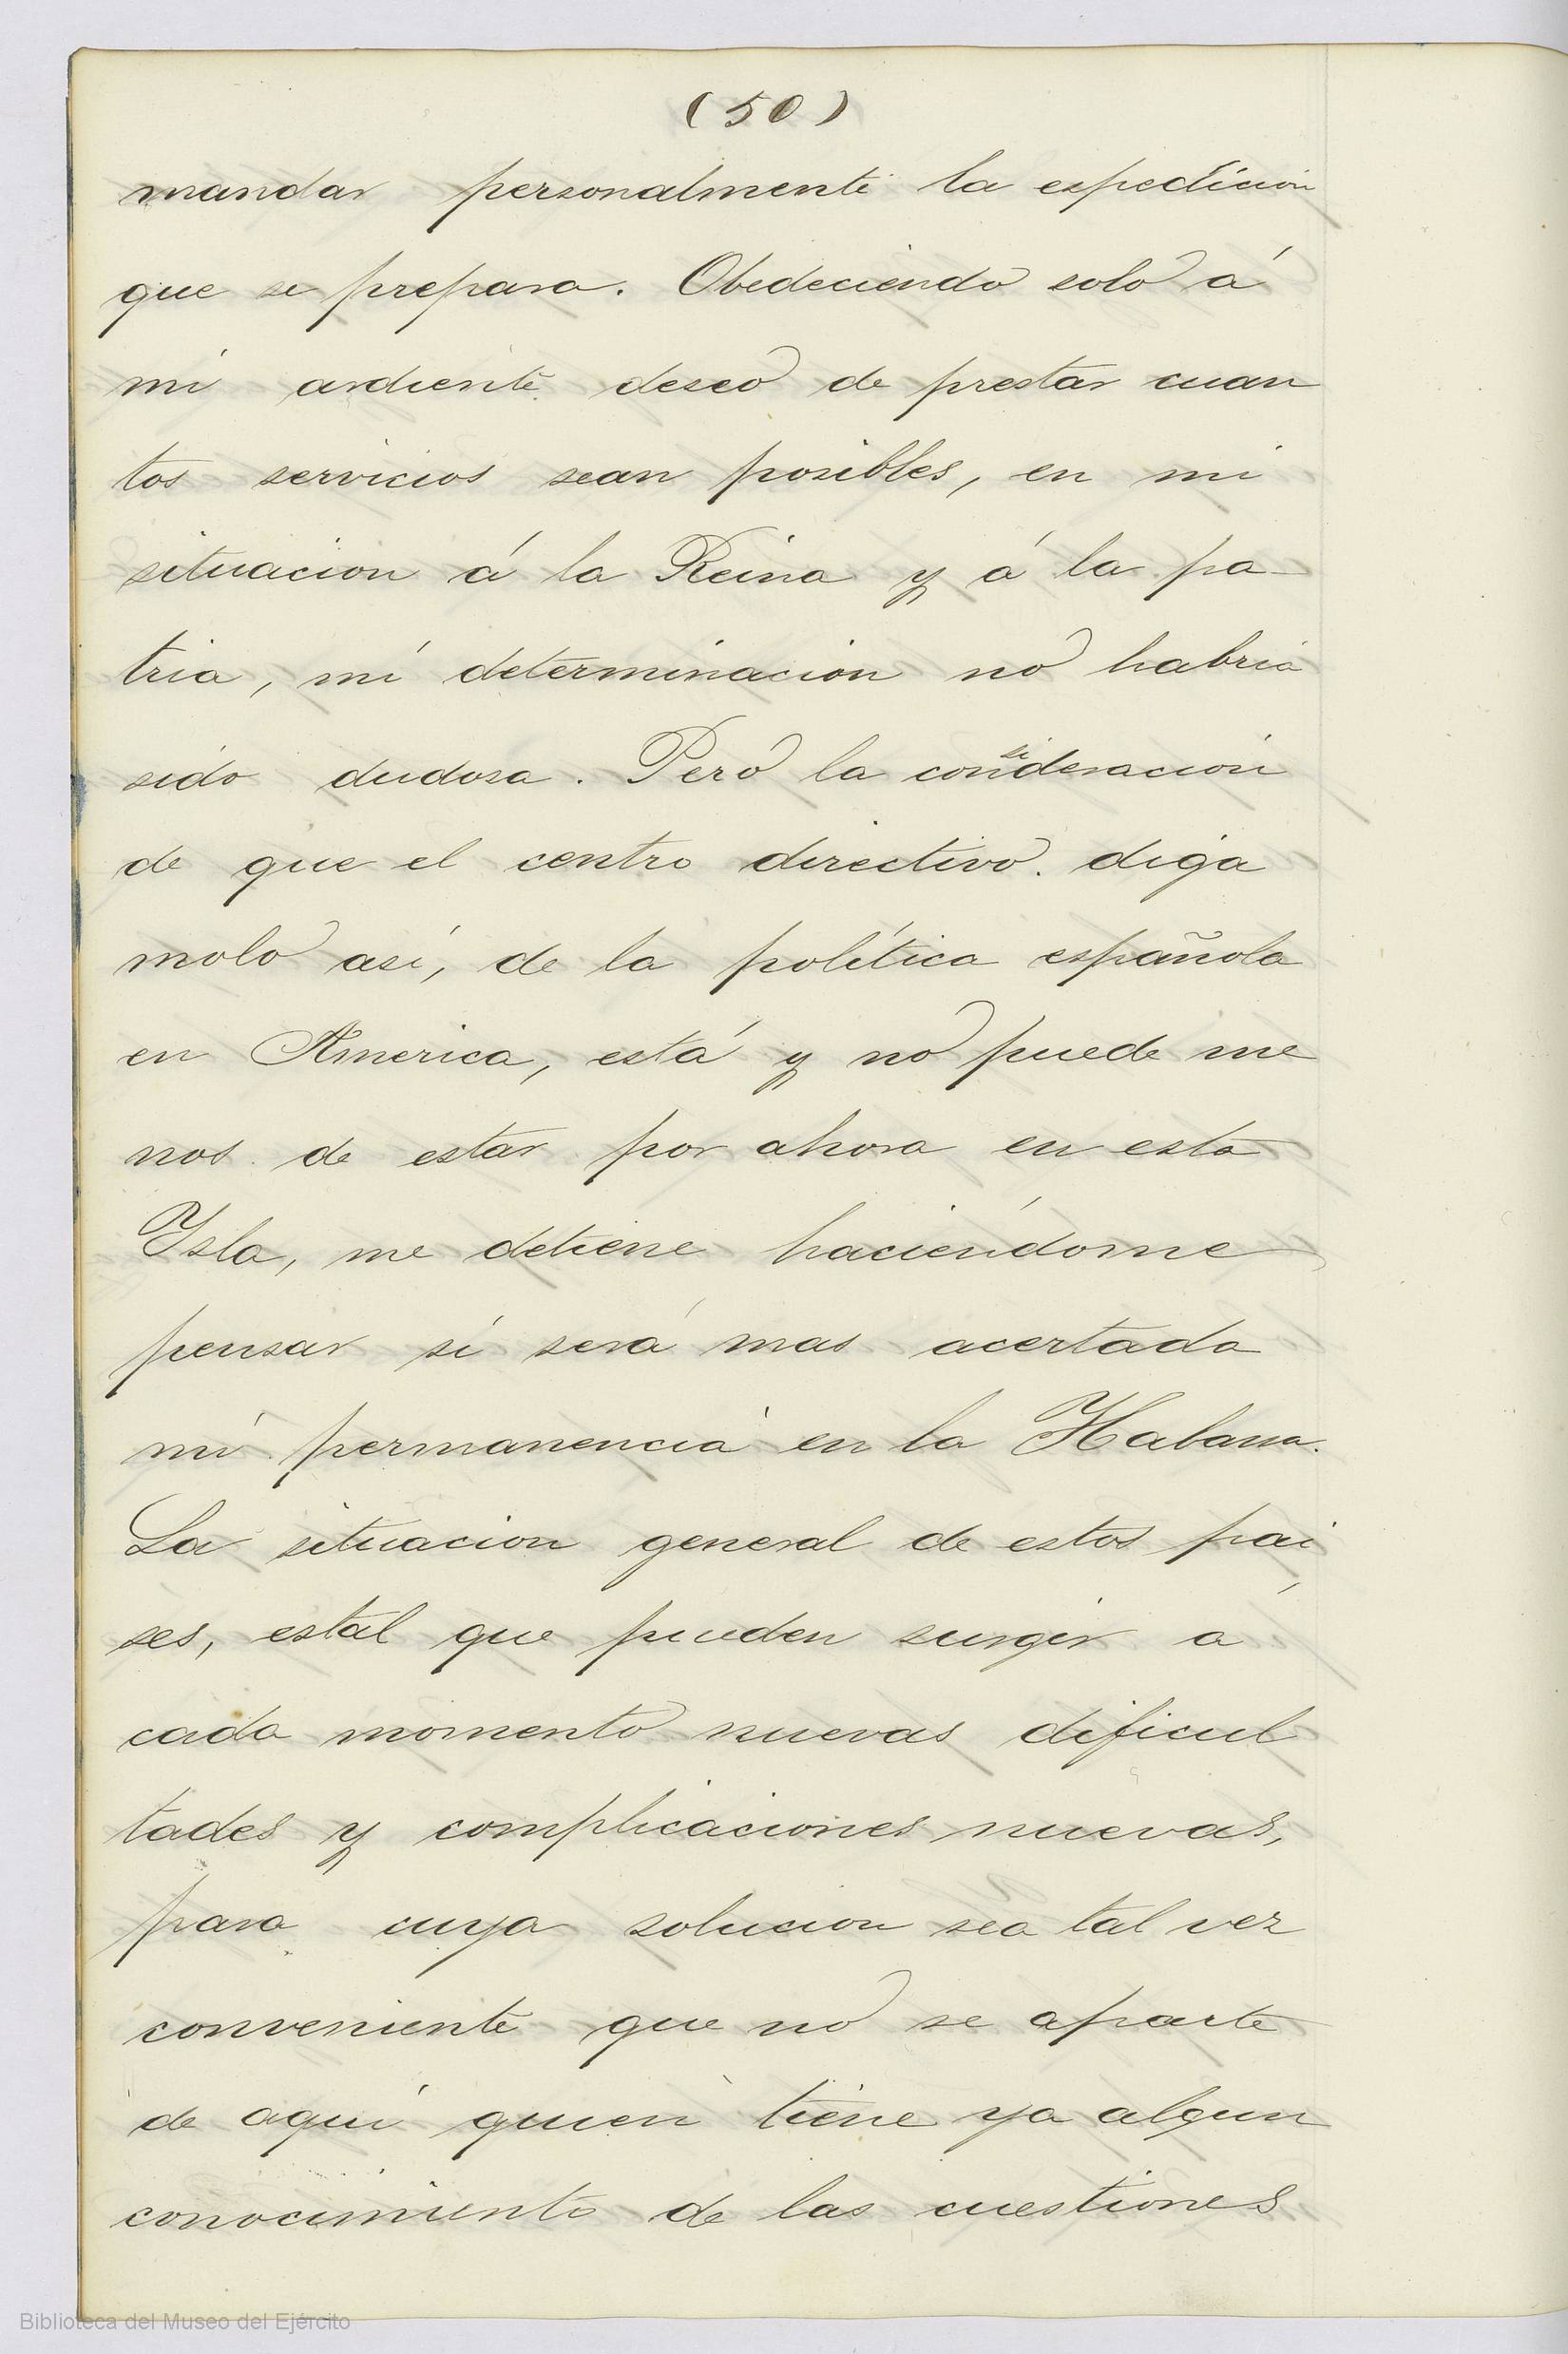 (50)
mandar personalmente la espedicion
que se prepara. Obedeciendo solo á
mi ardiente deseo de prestar cuan
tos servicios sean posibles, en mi
situacion á la Reina y á la pa-
tria, mi determinacion no habria
sido dudosa. Pero la consideracion
de que el centro directivo. diga
molo asi, de la política española
en America, está y no puede me
nos de estar por ahora en esta
Ysla, me detiene haciéndome
pensar si será mas acertada
mi permanencia en la Habana.
La situacion general de estos pai
ses, estal que pueden surgir á
cada momento nuevas dificul
tades y complicaciones nuevas,
para cuya solucion sea tal vez
conveniente que no se aparte
de aquí quien tiene ya algun
conocimiento de las cuestiones
Biblioteca del Museo del Ejército